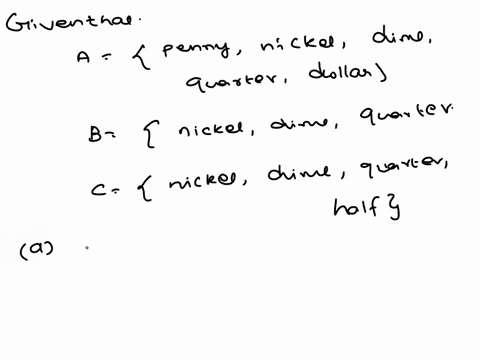 Given that.
A = { penny, nickel, dime,
quarter, dollar}
B = { nickel, dime, quarter.
C = { nickel, dime, quarter,
half }
(a)